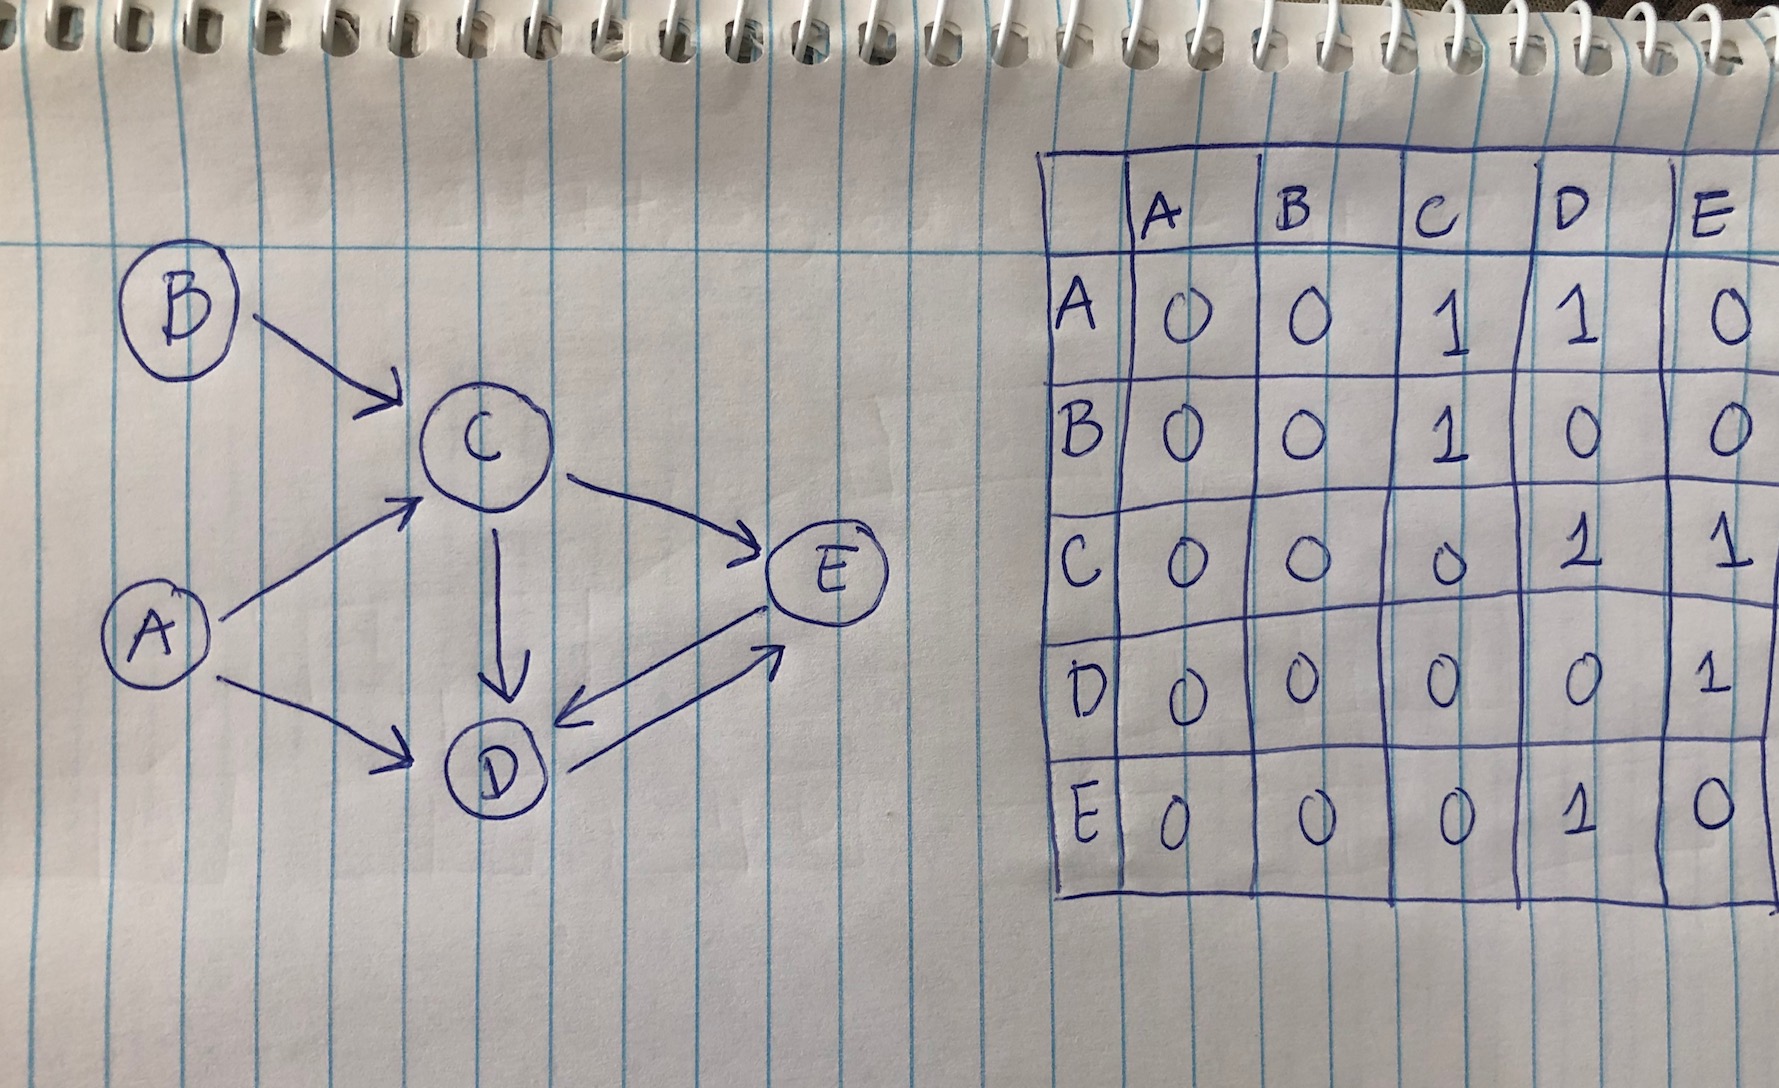 B
C
E
A
D
A B C D E
A 0 0 1 1 0
B 0 0 1 0 0
C 0 0 0 1 1
D 0 0 0 0 1
E 0 0 0 1 0